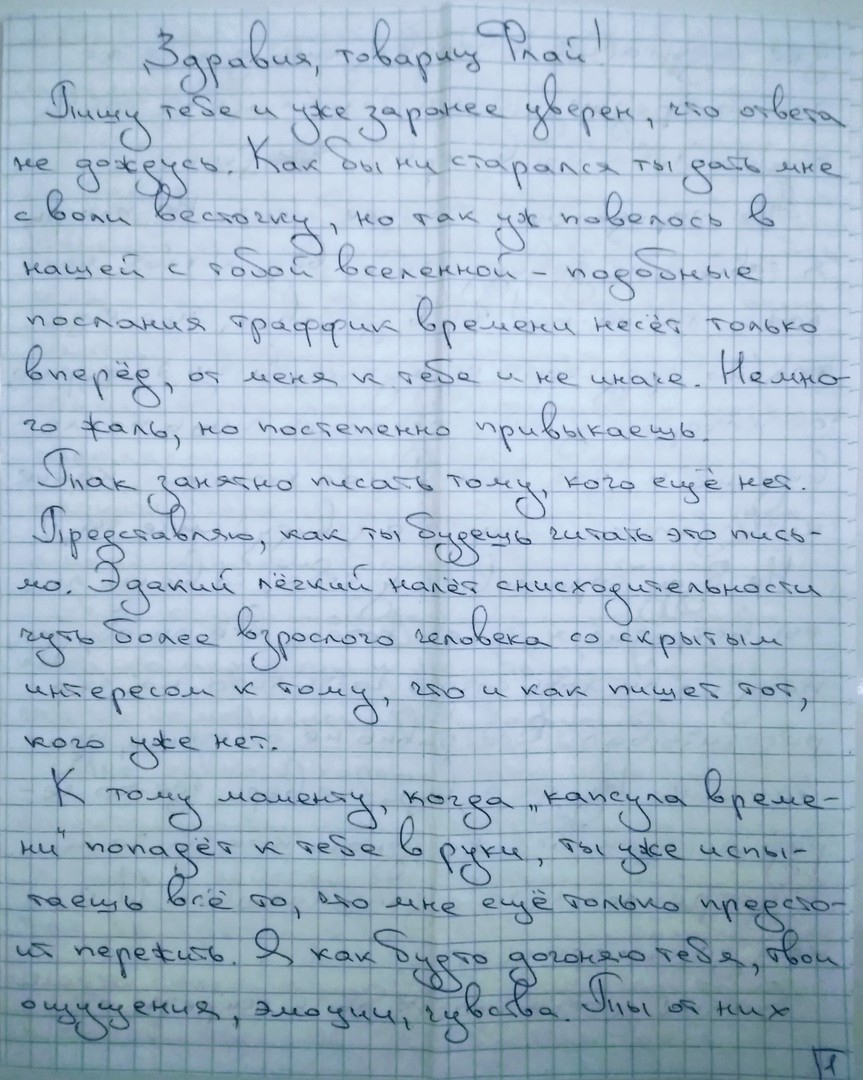 Здравия, товарищ Флай!
Пишу тебе и уже заранее уверен, что ответа
не дождусь. Как бы ни старался ты дать мне
с воли весточку, но так уж повелось в
нашей с тобой вселенной – подобные
послания траффик времени несёт только
вперёд, от меня к тебе и не иначе. Немно-
го жаль, но постепенно привыкаешь.
Так занятно писать тому, кого ещё нет.
Представляю, как ты будешь читать это пись-
мо. Эдакий лёгкий налёт снисходительности
чуть более взрослого человека со скрытым
интересом к тому, что и как пишет тот,
кого уже нет.
К тому моменту, когда „капсула време-
ни" попадёт к тебе в руки, ты уже испы-
таешь всё то, что мне ещё только предсто-
ит пережить. Я как будто догоняю тебя, твои
ощущения, эмоции, чувства. Ты от них
1